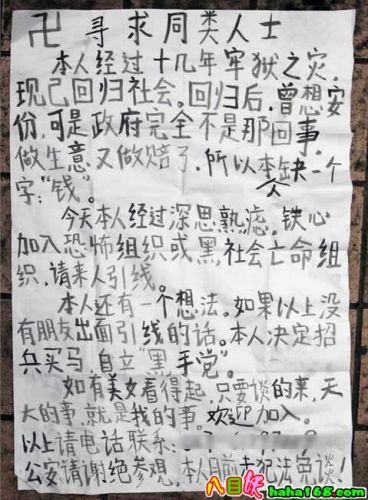 卐 寻求同类人士
本人经过十几年牢狱之灾,
现已回归社会。回归后,曾想安
份,可是政府完全不是那回事,
做生意又做赔了,所以本人缺一个
字:“钱”。
今天本人经过深思熟虑,铁心
加入恐怖组织或黑社会亡命组
织,请来人引线。
本人还有一个想法。如果以上没
有朋友出面引线的话。本人决定招
兵买马自立“黑手党”。
如有美女看得起,只要谈的来,天
大的事,就是我的事。欢迎加入。
以上请电话联系:
公安请谢绝参观,本人目前未犯法免谈!
八目妖
haha168.com